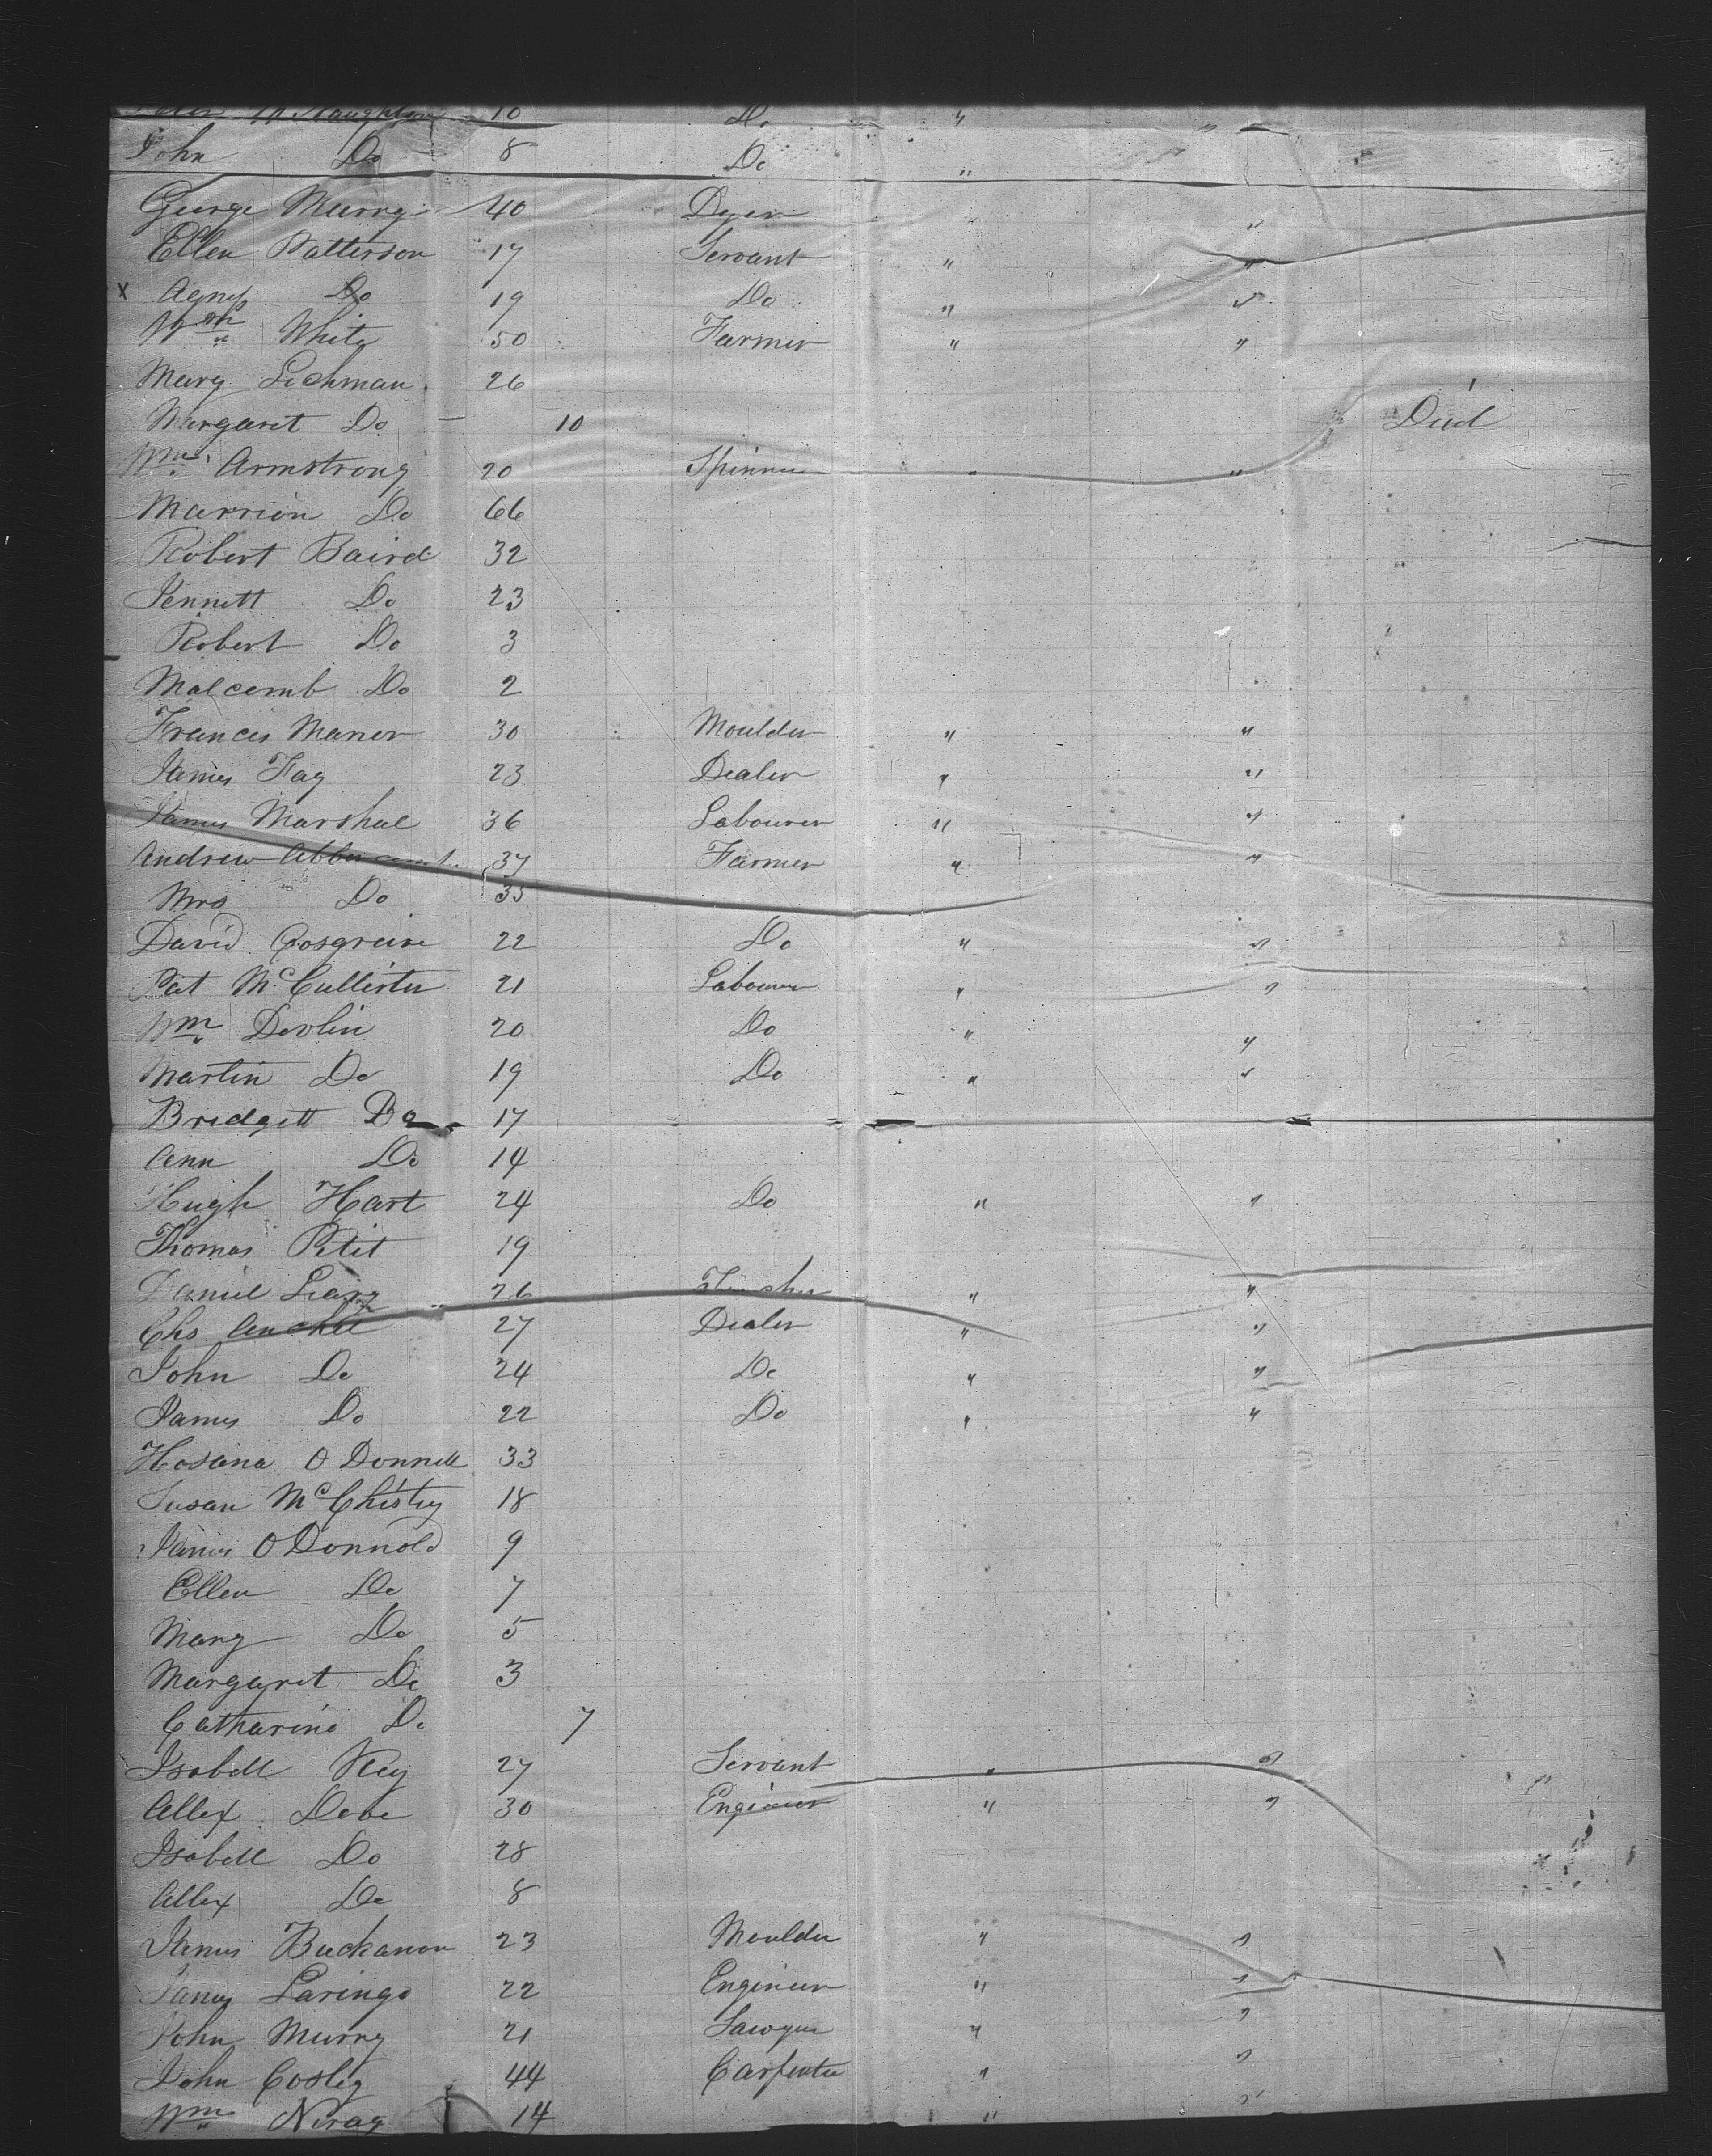 10 Do " "
John Do 8 Do "
George Murry 40 Dyer "
Ellen Patterson 17 Servant " "
x Agness Do 19 Do " "
Wm White 50 Farmer " "
Mary Lichman 26
Margaret Do - 10 Died
Wm Armstrong 20 Spinner " "
Marrion Do 66
Robert Baird 32
Jennett Do 23
Robert Do 3
Malcomb Do 2
Francis Maner 30 Moulder " "
James Fay 23 Dealer " "
James Marshal 36 Labourer " "
Andrew 37 Farmer " "
Mrs Do 35
David Cosgreive 22 Do " "
Pat McCullister 21 Labourer " "
Wm Devlin 20 Do " "
Martin Do 19 Do " "
Bridgett Do 17
Ann Do 14
Hugh Hart 24 Do " "
Thomas Petit 19
Daniel Leary 26 " "
Chs 27 Dealer " "
John Do 24 Do " "
James Do 22 Do " "
Hosana O Donnell 33
Susan McChisty 18
James O Donnold 9
Ellen Do 7
Mary Do 5
Margaret Do 3
Catharine Do 7
Isabell Key 27 Servant " "
Allex Dobe 30 Engineer " "
Isabell Do 28
Allex Do 8
James Buckanon 23 Moulder " "
James Laringo 22 Engineer " "
John Murry 21 Sawyer " "
John Cosley 44 Carpenter " "
Wm 14 " "